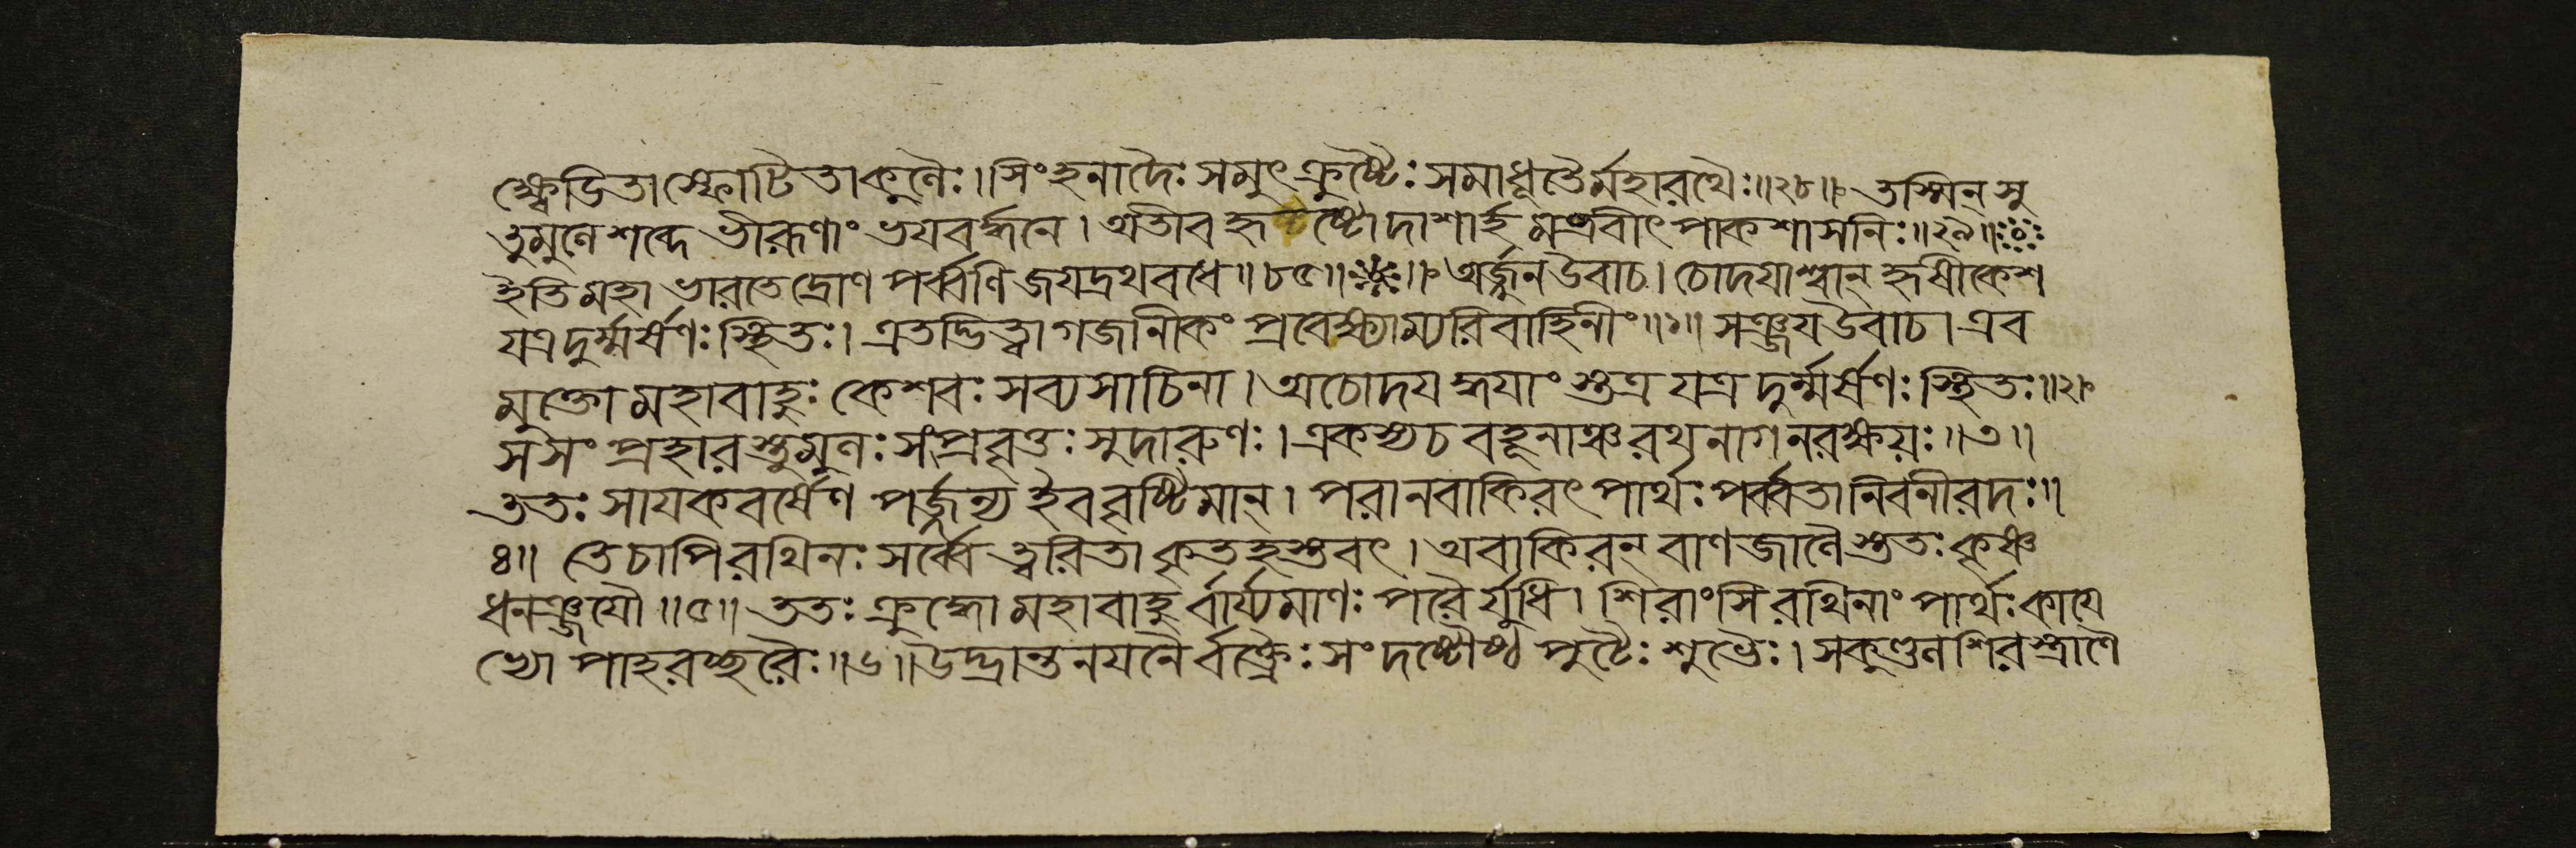 ক্ষ্বেডিতাস্ফোটিতাকুলৈঃ।সিংহনাদৈঃ সমুৎক্রুষ্টৈঃ সমাধূতৈর্মহারথৈঃ॥২৮॥ তস্মিন্ সু
তুমুলে শব্দে ভীরূণাং ভয়বর্দ্ধনে। অতীব হৃষ্টোদাশার্হমব্রবীৎ পাকশাসনিঃ॥২৯॥
ইতি মহাভারতে দ্রোণপর্ব্বণি জয়দ্রথবধে॥৮৫॥ অর্জ্জুন উবাচ। চোদয়াশ্বান্ হৃষীকেশ
যত্র দুর্ম্মর্ষণঃ স্থিতঃ। এতদ্ভিত্ত্বা গজানীকং প্রবেক্ষ্যাম্যরিবাহিনীং॥১॥ সঞ্জয় উবাচ। এব
মুক্তো মহাবাহুঃ কেশবঃ সব্যসাচিনা। অচোদয়দ্ধয়াংস্তত্র যত্র দুর্ম্মর্ষণঃ স্থিতঃ॥২॥
স সংপ্রহারস্তুমুলঃ সংপ্রবৃত্তঃ সুদারুণঃ। একস্য চ বহূনাঞ্চ রথনাগনরক্ষয়ঃ॥৩॥
ততঃ সায়কবর্ষেণ পর্জ্জন্য ইব বৃষ্টিমান্। পরানবাকিরৎ পার্থঃ পর্ব্বতানিব নীরদঃ॥
৪॥ তে চাপি রথিনঃ সর্ব্বে ত্বরিতা কৃতহস্তবৎ। অবাকিরন্ বাণজালৈস্ততঃ কৃষ্ণ
ধনঞ্জয়ৌ॥৫॥ ততঃ ক্রুদ্ধো মহাবাহুর্বার্য্যমাণঃ পরৈর্যুধি। শিরাংসি রথিনাং পার্থঃ কায়ে
ভ্যোপাহরচ্ছরৈঃ॥৬॥ উদ্ভ্রান্তনয়নৈর্বক্ত্রৈঃ সংদষ্টৌষ্ঠপুটৈঃ শুভৈঃ। সকুণ্ডলশিরস্ত্রাণৈ